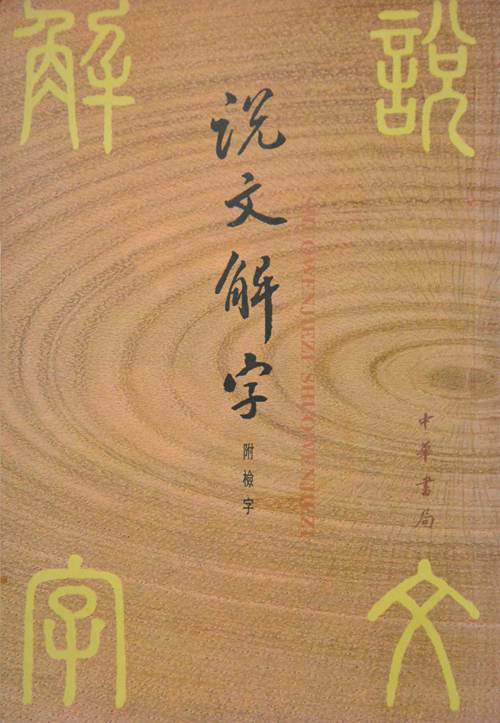 說
文
解
字
说文解字
附檢字
SHUOWENJIEZI SHUOWENJIEZI
中華書局